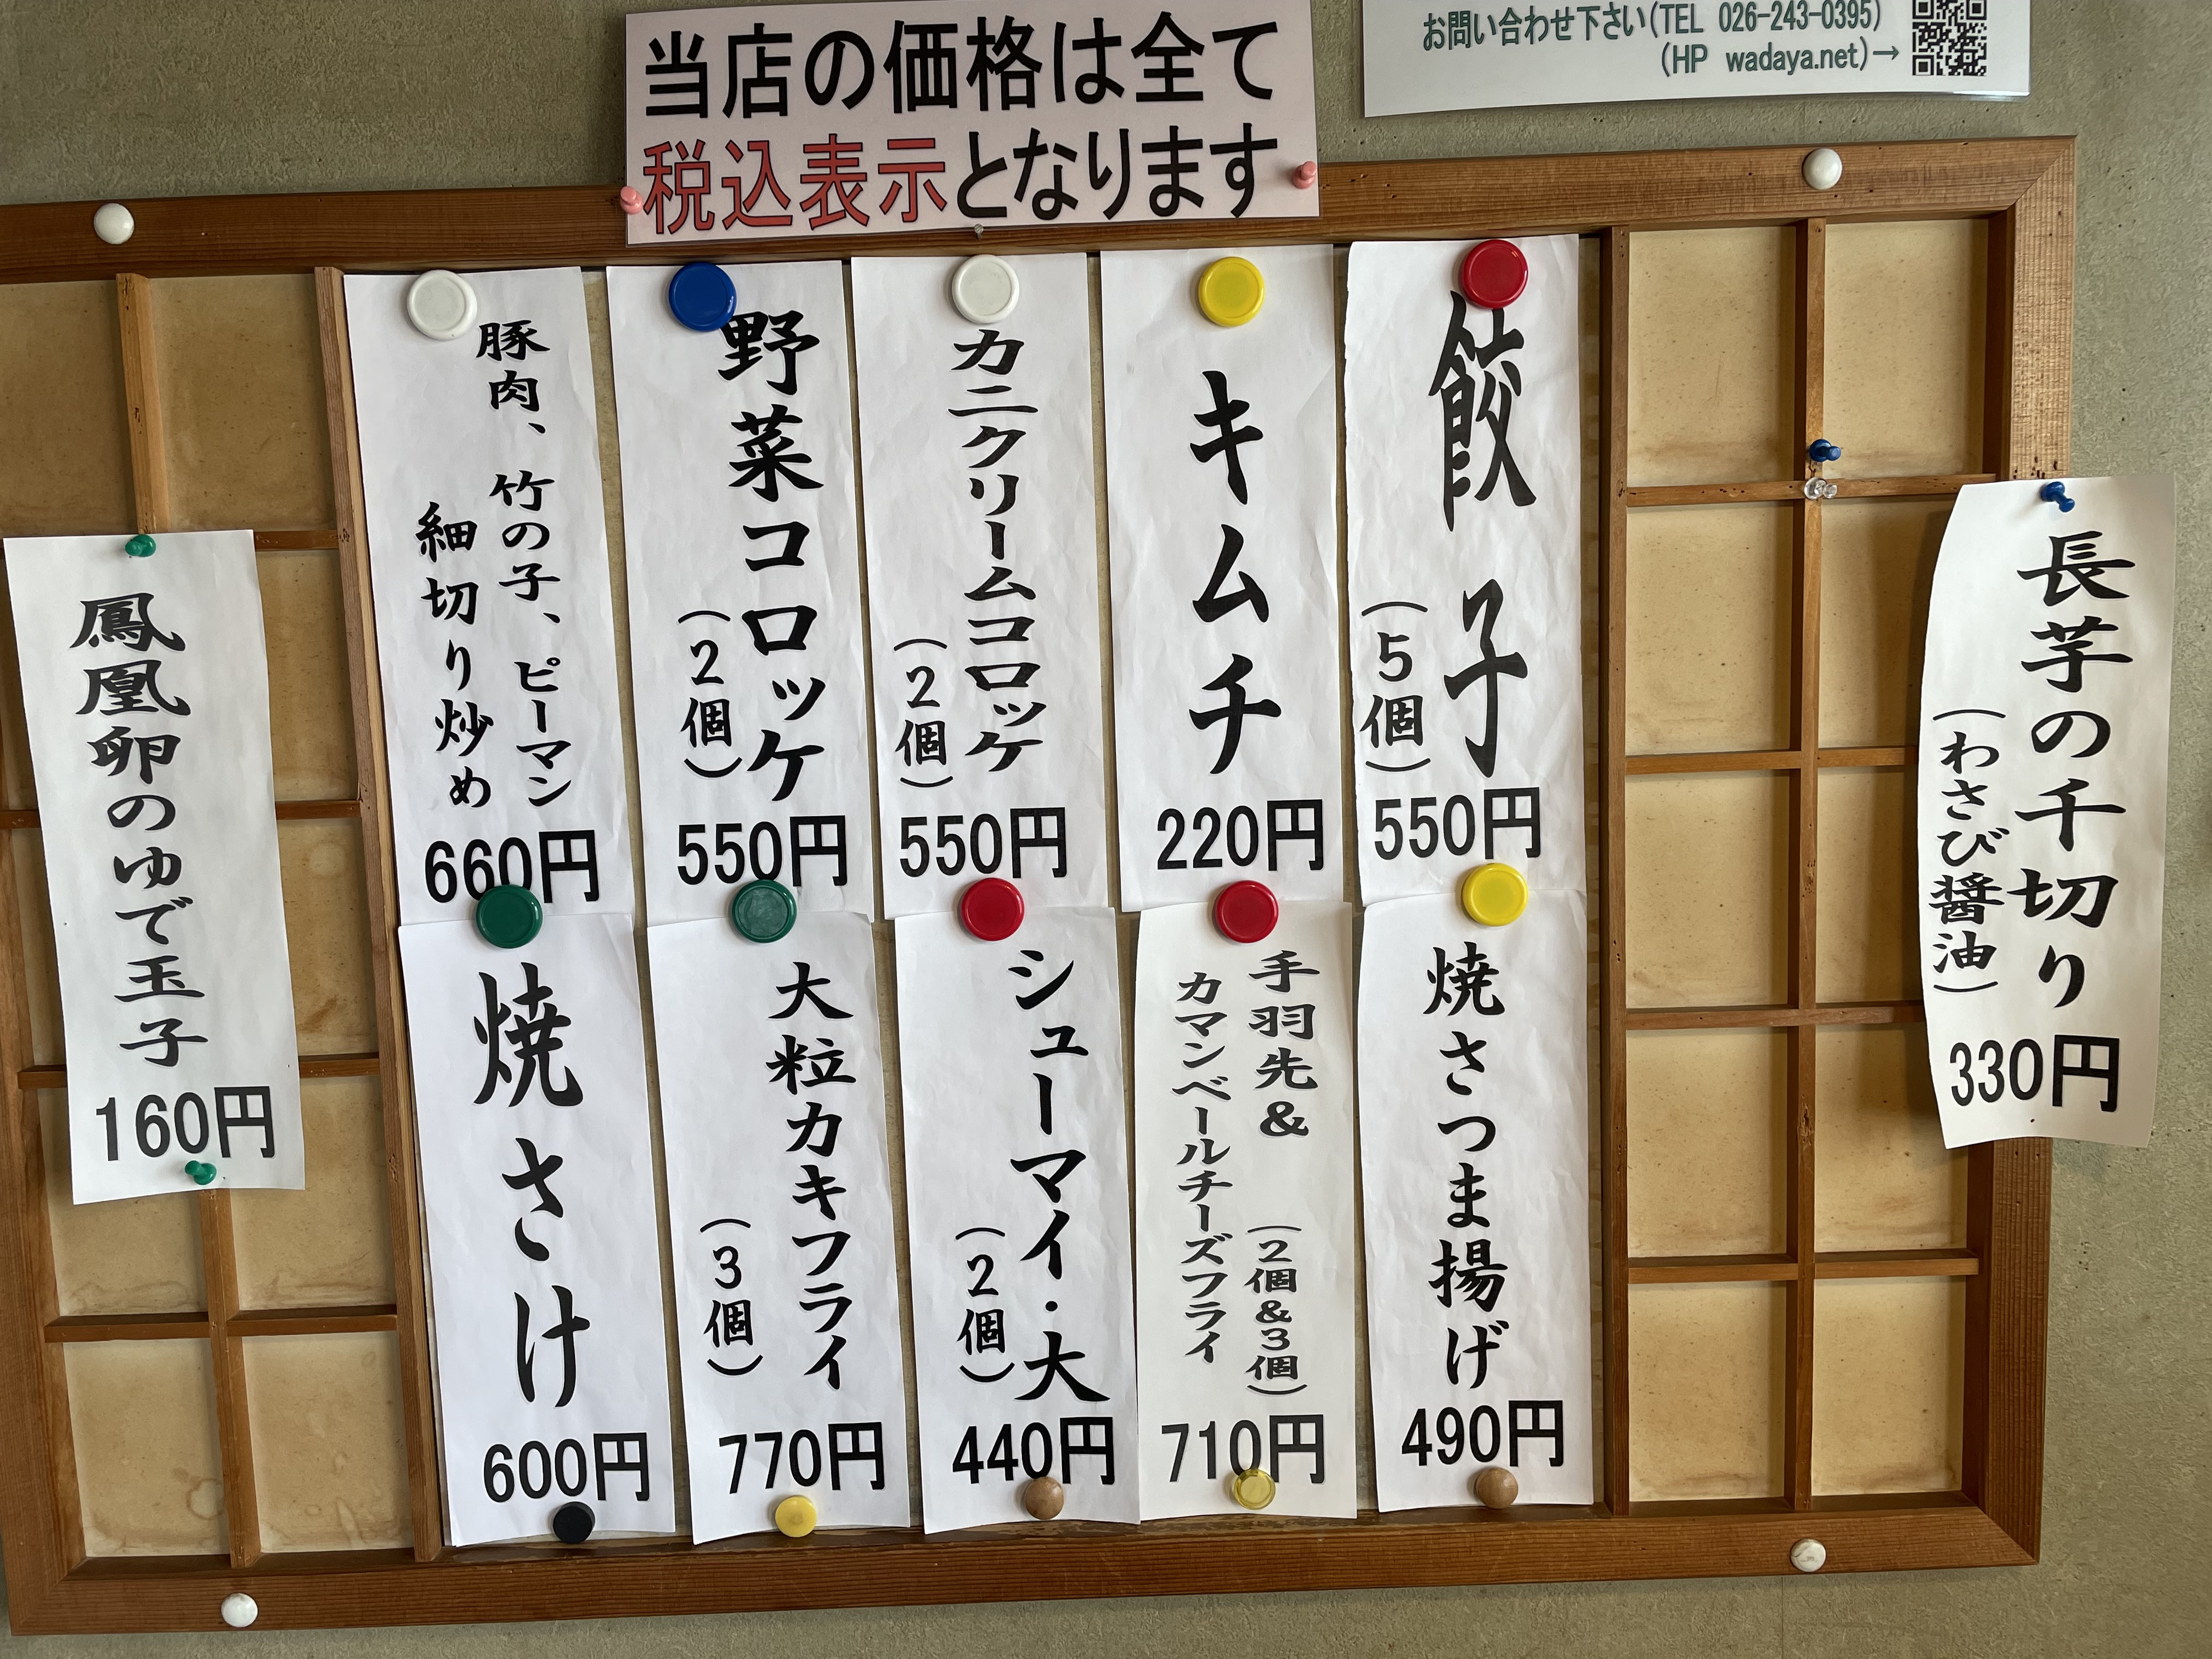 お問い合わせ下さい(TEL 026-243-0395)
(HP wadaya.net)→
当店の価格は全て
税込表示となります
長芋の千切り
(わさび醤油)
330円
餃子
(5個)
550円
キムチ
220円
カニクリームコロッケ
(2個)
550円
野菜コロッケ
(2個)
550円
豚肉、竹の子、ピーマン
細切り炒め
660円
焼さつま揚げ
490円
手羽先& (2個&3個)
カマンベールチーズフライ
710円
シューマイ・大
(2個)
440円
大粒カキフライ
(3個)
770円
焼さけ
600円
鳳凰卵のゆで玉子
160円